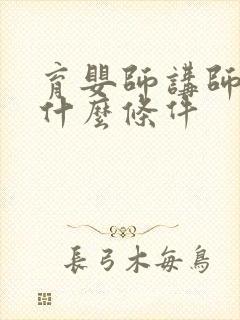 育嬰師講師
什麼條件
長弓木每鳥